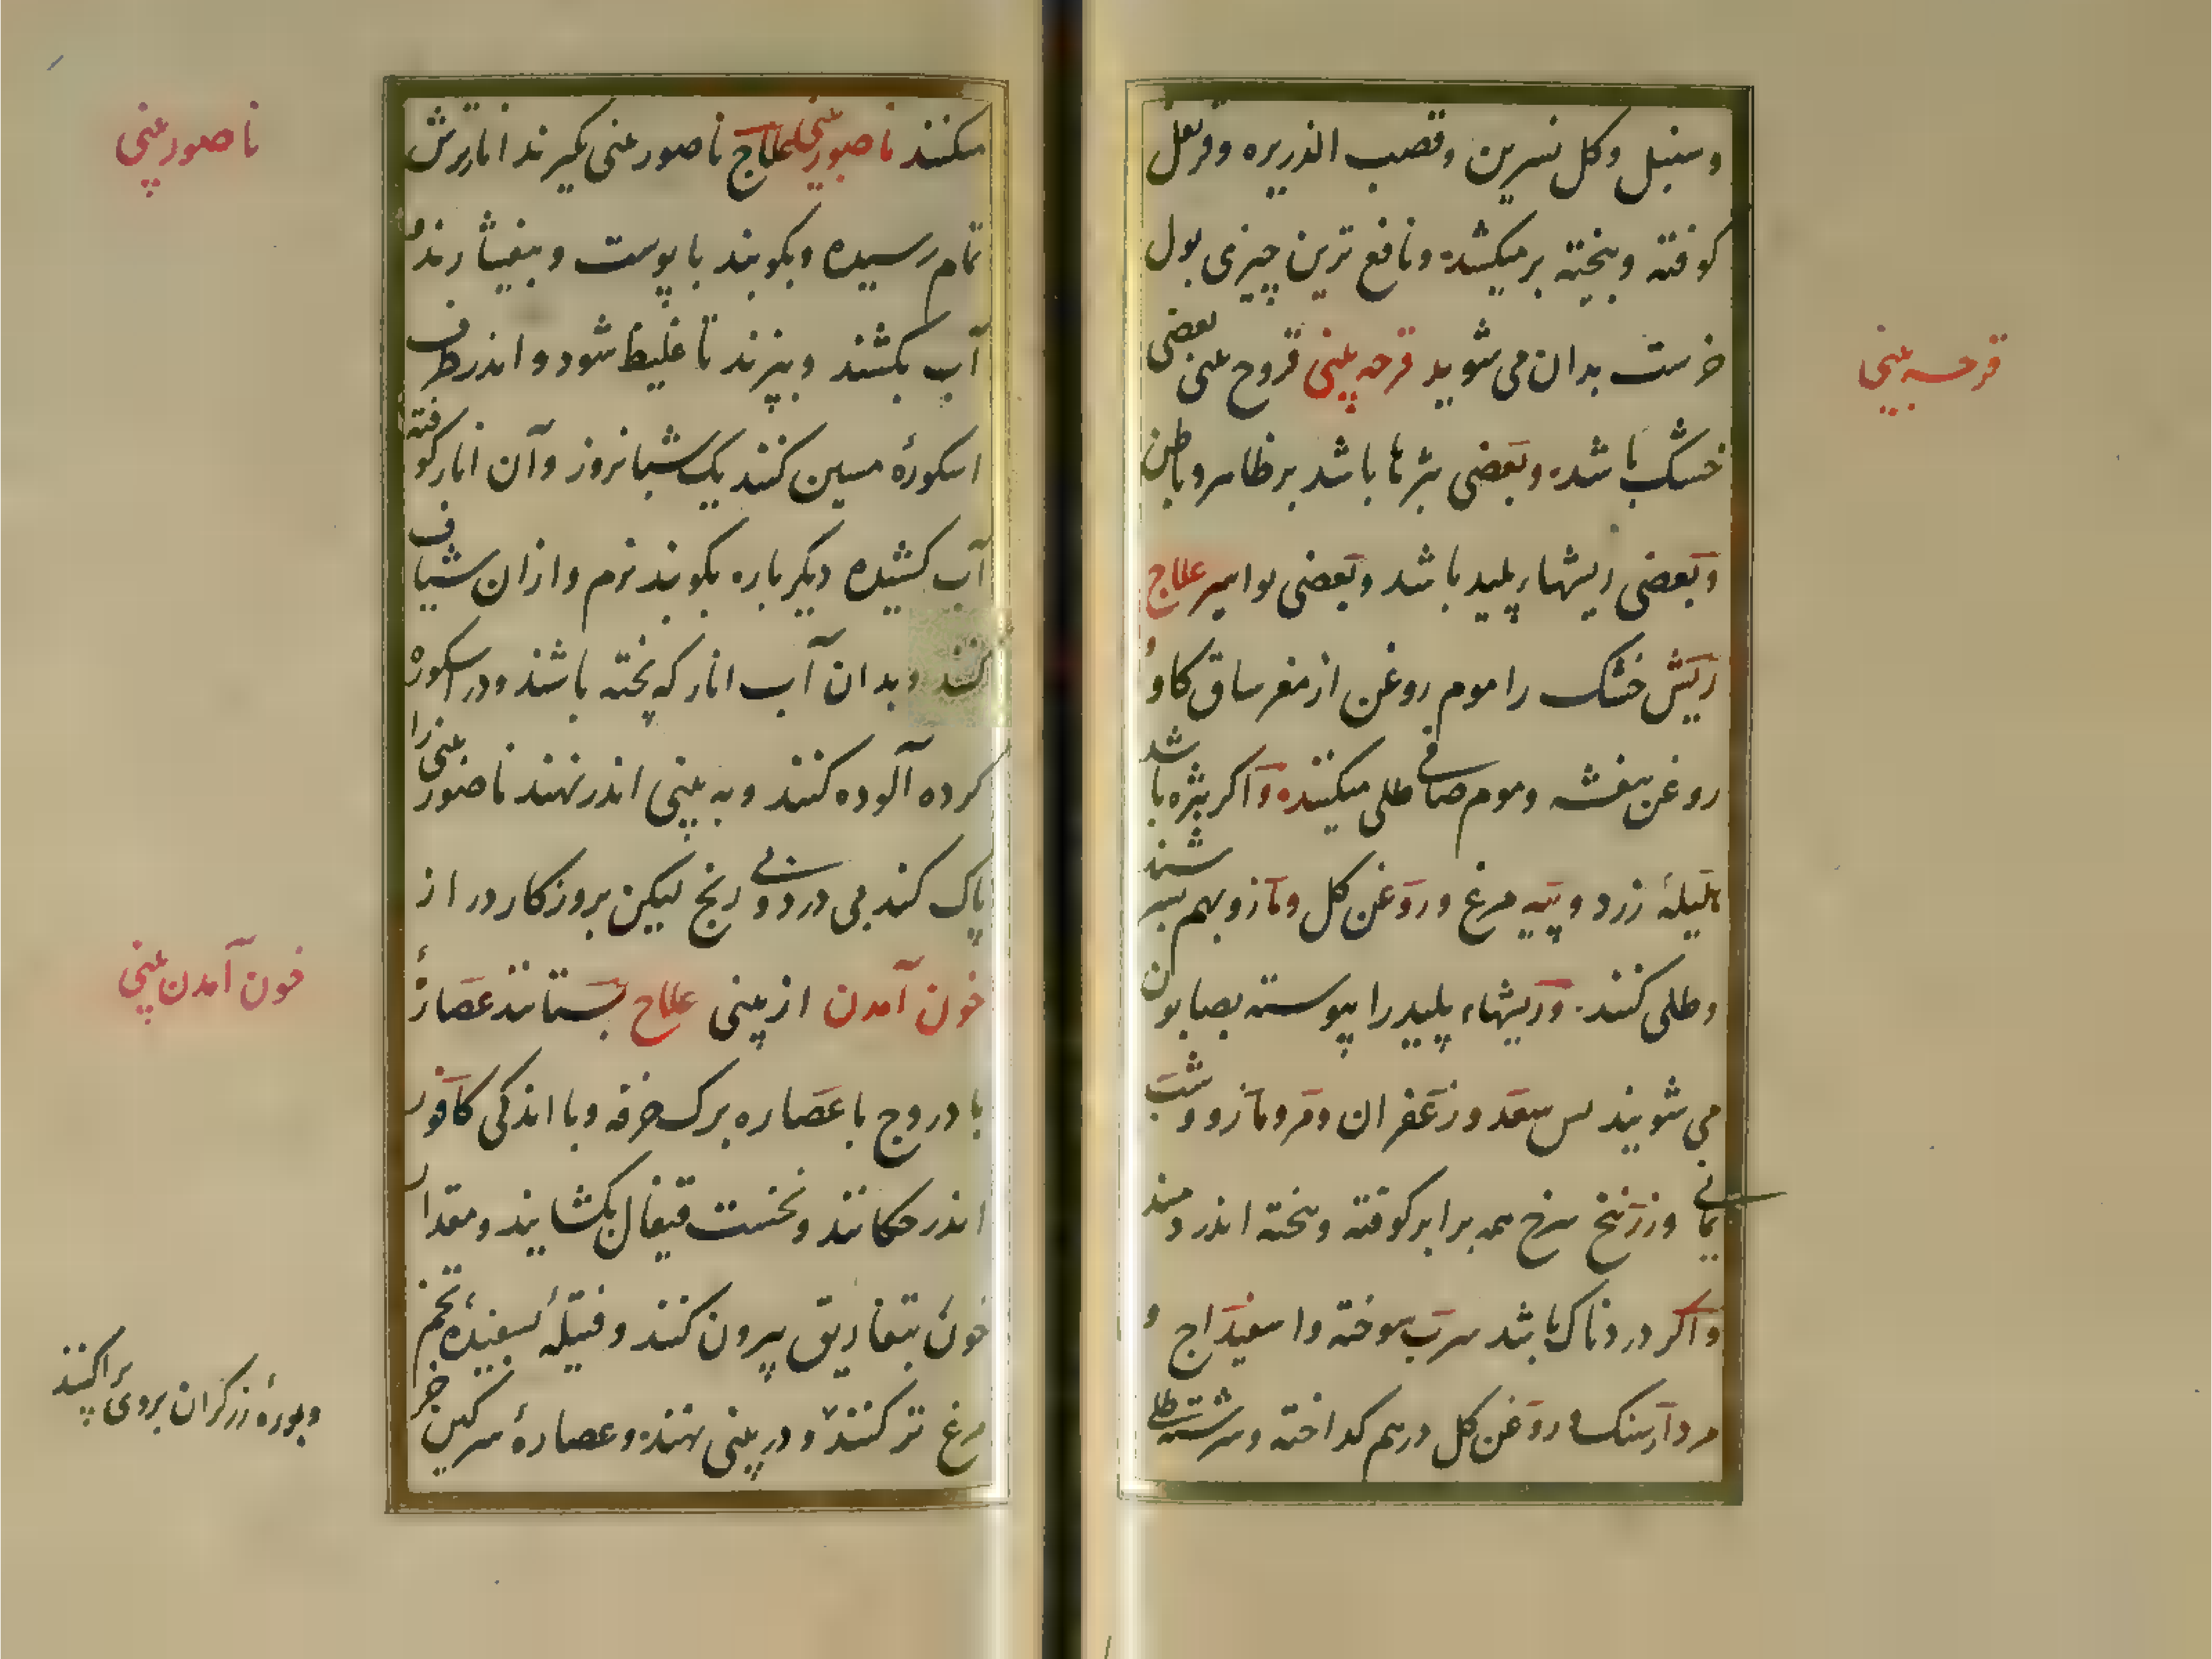 و سنبل و کل نسرین و قصب الذریره و قرنفل
کوفته و بیخته برمیکشد و نافع ترین چیزی بول
خرست بدان می شوید قرحه بینی قروح بینی بعضی
قرحه بینی
خشک باشد و بعضی بثرها باشد بر ظاهر و باطن
و بعضی ریشهاء پلید باشد و بعضی بواسیر علاج
ریش خشک را موم روغن از مغز ساق کاو و
روغن بنفشه و موم صافی طلی میکنند و اکر بثره باشد
هلیلهٔ زرد و پیه مرغ و روغن کل و مازو بهم بسرشند
و طلی کنند و ریشهاء پلید را پیوسته بصابون
می شویند پس سعد و زعفران و مر و مازو و شب
یمانی و زرنیخ سرخ همه برابر کوفته و بیخته اندر دمند
و اکر دردناک باشد سرب سوخته و اسفیداج و
مرداسنک و روغن کل درهم کداخته و سرشته طلی
میکنند ناصور بینی علاج ناصور بینی بکیرند انار ترش
ناصور بینی
تمام رسیده و بکوبند با پوست و بیفشارند و
آب بکشند و بپزند تا غلیظ شود و اندر ظرف
اسکورهٔ مسین کنند یک شبانروز و آن انار کوفته
آب کشیده دیکر باره بکوبند نرم و ازان شیاف
کنند و بدان آب انار که پخته باشند و در اسکوره
کرده آلوده کنند و به بینی اندر نهند ناصور بینی را
پاک کند بی درد و بی رنج لیکن بروزکار دراز
خون آمدن از بینی علاج بستانند عصارهٔ
خون آمدن بینی
بادروج با عصاره برک خرفه و با اندکی کافور
اندر چکانند و نخست قیفال بکشایند و مقدار
خون بتفاریق بیرون کنند و فتیلهٔ بسفیدهٔ تخم
مرغ تر کنند و در بینی نهند و عصارهٔ سرکین خر
و بورهٔ زرکران بروی پراکنند